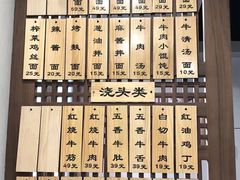 榨菜鸡丝面 25元
辣酱面 20元
烤麸面 20元
葱油拌面 15元
麻酱拌面 15元
牛肉汤 15元
牛肉小馄饨 15元
牛清汤面 10元
浇头类
红烧牛筋 49元
红烧牛肉 39元
五香牛肚 39元
五香牛舌 39元
白切牛肉 39元
红油鸡丁 19元